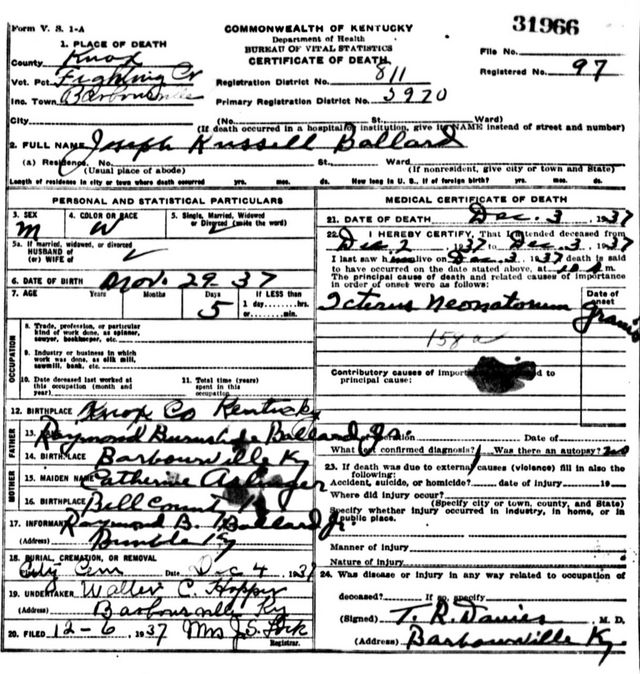 Form V. S. 1-A
COMMONWEALTH OF KENTUCKY
Department of Health
BUREAU OF VITAL STATISTICS
CERTIFICATE OF DEATH
31966
File No.
Registered No. 97
1. PLACE OF DEATH
County Knox
Vot. Pct. Fighting Cr
Inc. Town Barbourville
Registration District No. 811
Primary Registration District No. 5970
City (No. St., Ward)
(If death occurred in a hospital or institution, give its NAME instead of street and number)
2. FULL NAME Joseph Russell Ballard
(a) Residence. No. St., Ward
(Usual place of abode) (If nonresident, give city or town and State)
Length of residence in city or town where death occurred yrs. mos. ds. How long in U. S., if of foreign birth? yrs. mos. ds.
PERSONAL AND STATISTICAL PARTICULARS
3. SEX M
4. COLOR OR RACE W
5. Single, Married, Widowed or Divorced (write the word)
5a. If married, widowed, or divorced
HUSBAND of
(or) WIFE of
6. DATE OF BIRTH Nov. 29-37
7. AGE Years Months Days If LESS than
5 1 day, hrs.
or min.
OCCUPATION
8. Trade, profession, or particular kind of work done, as spinner, sawyer, bookkeeper, etc.
9. Industry or business in which work was done, as silk mill, sawmill, bank, etc.
10. Date deceased last worked at this occupation (month and year)
11. Total time (years) spent in this occupation
12. BIRTHPLACE Knox Co Kentucky
FATHER
13. Raymond Burnside Ballard Jr.
14. BIRTHPLACE Barbourville Ky
MOTHER
15. MAIDEN NAME Catherine
16. BIRTHPLACE Bell County
17. INFORMANT Raymond B. Ballard Jr
(Address) Bimble Ky
18. BURIAL, CREMATION, OR REMOVAL
City Cem Date Dec 4 1937
19. UNDERTAKER Walter C. Hopper
(Address) Barbourville Ky
20. FILED 12-6, 1937 Mrs J. S. Lock
Registrar.
MEDICAL CERTIFICATE OF DEATH
21. DATE OF DEATH Dec. 3, 1937
22. I HEREBY CERTIFY, That I attended deceased from
Dec 2, 1937 to Dec 3, 1937
I last saw h alive on Dec 3, 1937 death is said
to have occurred on the date stated above, at 10 m.
The principal cause of death and related causes of importance
in order of onset were as follows:
Date of onset
Icterus Neonatorum Gravis
158a
Contributory causes of importance not related to
principal cause:
operation Date of
What test confirmed diagnosis? Was there an autopsy? no
23. If death was due to external causes (violence) fill in also the
following:
Accident, suicide, or homicide? date of injury 19
Where did injury occur?
(Specify city or town, county, and State)
Specify whether injury occurred in industry, in home, or in
public place.
Manner of injury
Nature of injury
24. Was disease or injury in any way related to occupation of
deceased? If so, specify
(Signed) T. R. Davies M. D.
(Address) Barbourville Ky